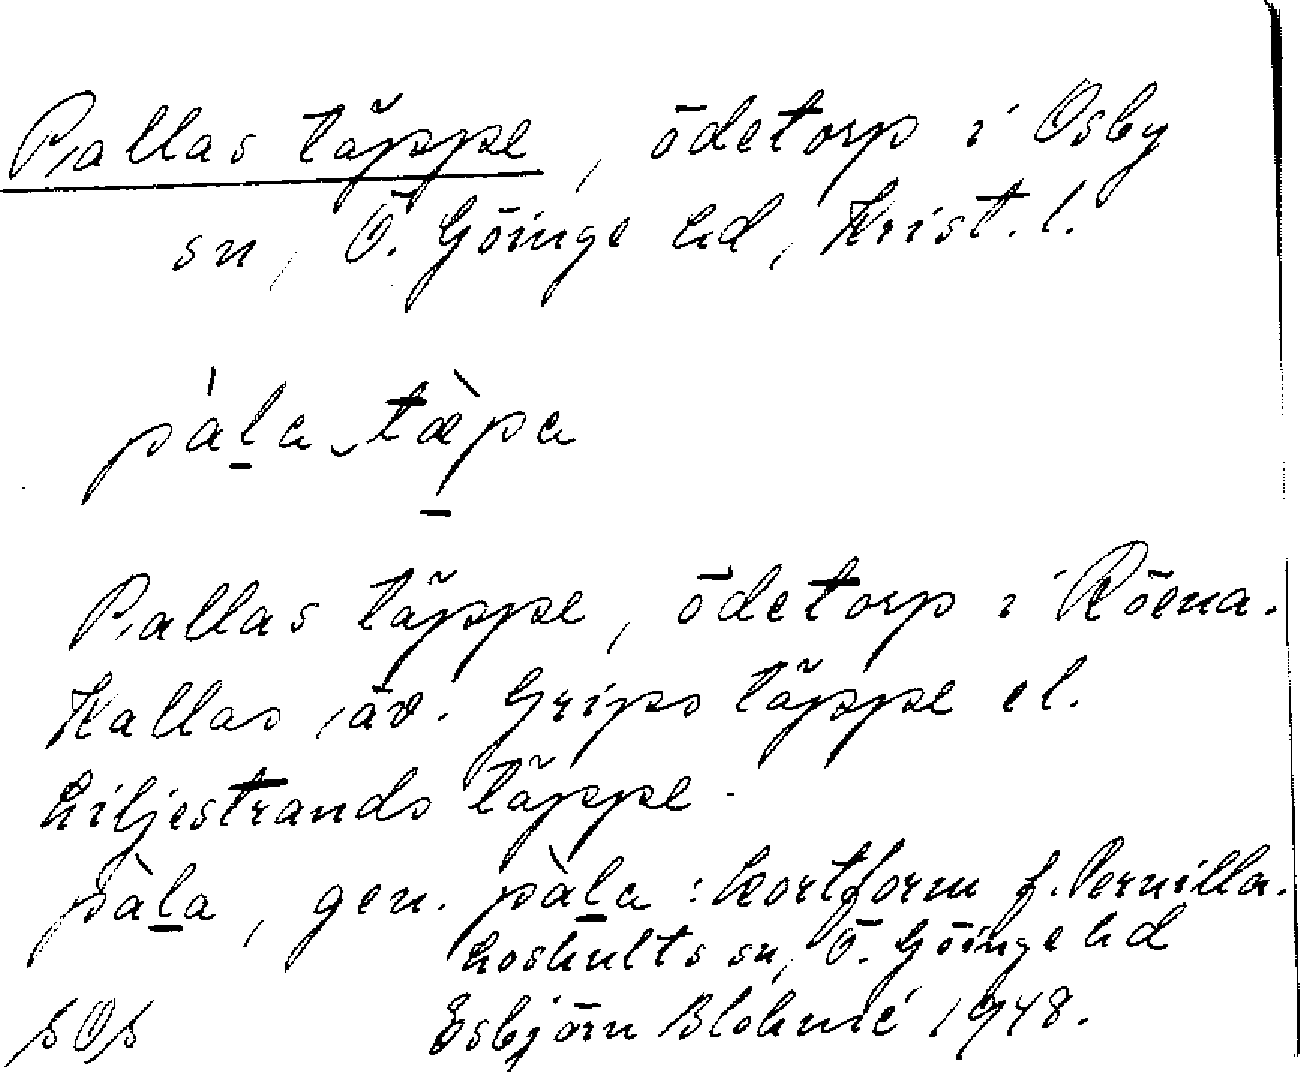 Pallas täppe, ödetorp i Osby
sn, Ö. Göinge hd, Krist. l.
pàla tæ̀pa
Pallas täppe, ödetorp i Röena.
Kallas äv. Grips täppe el.
Liljestrands täppe.
pàla, gen. pàla: kortform f. Pernilla.
Loshults sn, Ö. Göinge hd
sOs Esbjörn Blohmé 1948.